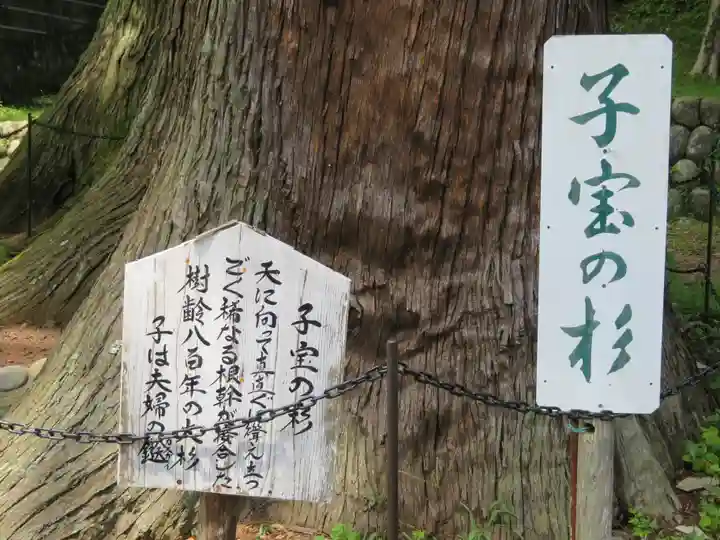 子宝の杉
天に向って真直ぐに聳え立つ
ごく稀なる根幹が接合した
樹齢八百年の大杉
子は夫婦の鎹
子宝の杉